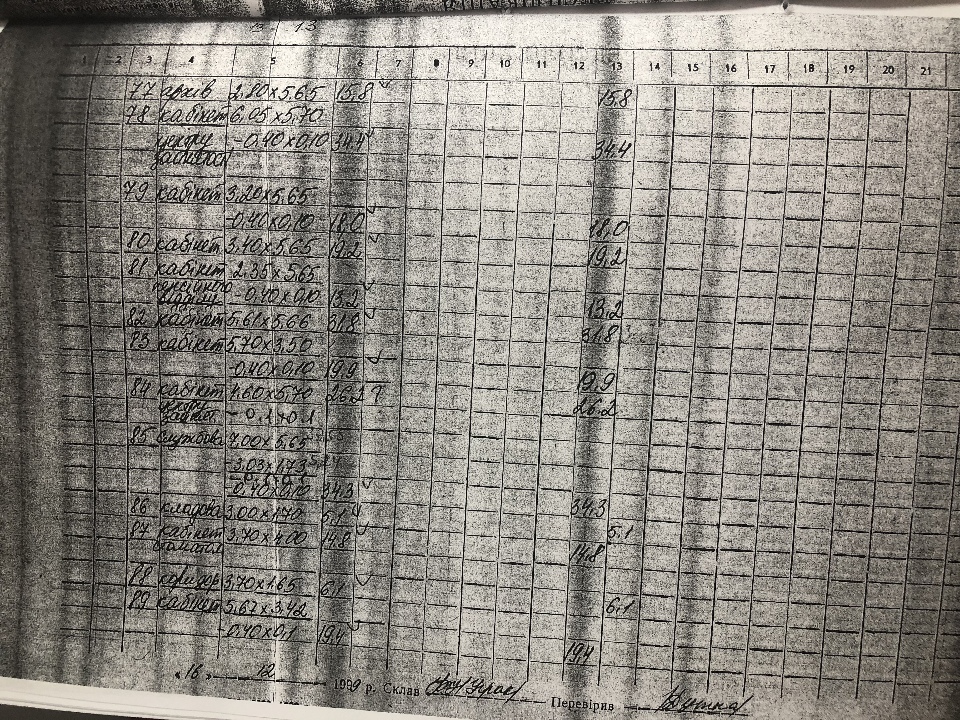 13
1 2 3 4 5 6 7 8 9 10 11 12 13 14 15 16 17 18 19 20 21
77 архів 2.80×5,65 15,8 15.8
78 кабінет 6,05×5,70
центру -0.40×0,10 34.4 34.4
зайнятості
79 кабінет 3,20×5,65
-0,40×0,10 18,0 18,0
80 кабінет 3,40×5,65 19,2 19,2
81 кабінет 2.35×5,65
пенсійного
відділу -0,40×0,10 13,2 13,2
82 кабінет 5,61×5,66 31,8 31,8
83 кабінет 5,70×3,50
-0,40×0,10 19,9 19.9
84 кабінет 4,60×5,70 26.2 26.2
-0.1×0.1
85 службова 7,00×5,65
-3,03×1,73
-0,40×0,10 34,3 34,3
86 кладова 3,00×1,70 5,1 5.1
87 кабінет 3,70×4,00 14,8 14,8
88 коридор 3,70×1,65 6,1 6.1
89 кабінет 5,67×3,42
-0,40×0,1 19,4 19,4
"16" 12 1989 р. Склав Перевірив